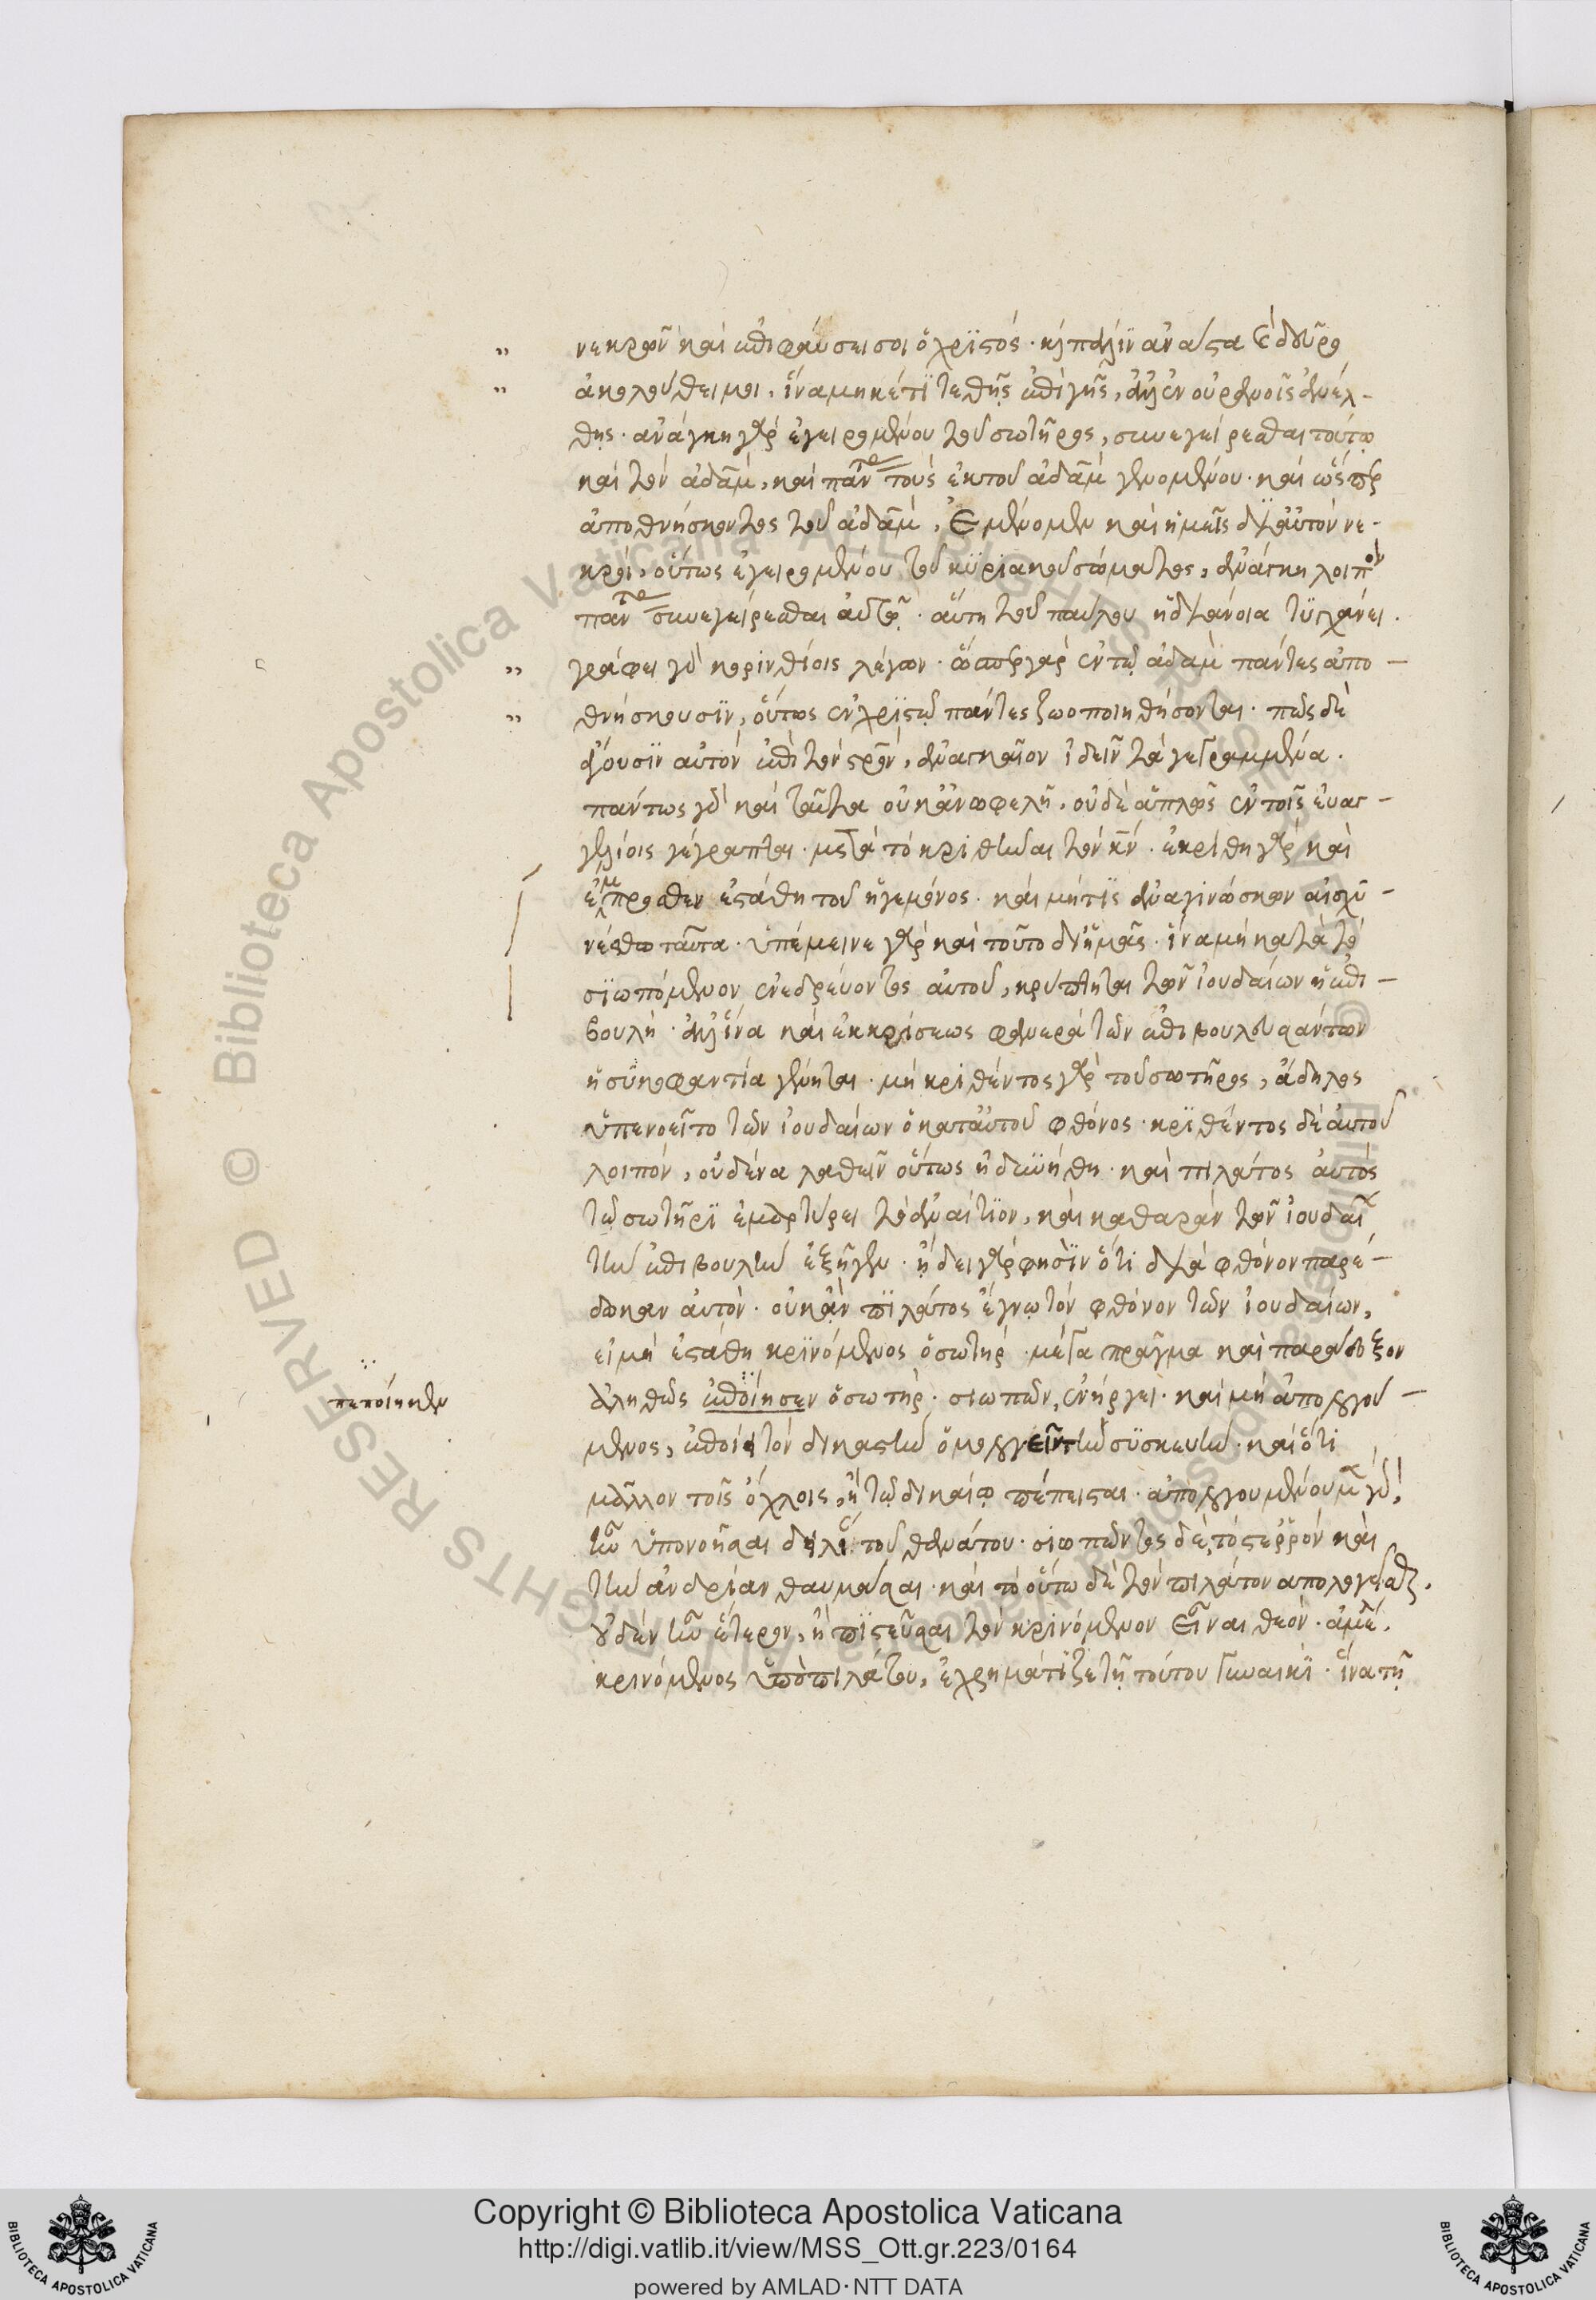 νεκρῶν καὶ ἐπιφαύσει σοι ὁ χριστός· καὶ πάλιν ἀνάστα ἐ δεῦρο
ἀκολούθει μοι, ἵνα μηκέτι τεθῇς ἐπὶ γῆς, ἀλλ' ἐν οὐρανοῖς ἀνέλ-
θῃς· ἀνάγκη γὰρ ἐγειρομένου τοῦ σωτῆρος, συνεγείρεσθαι τούτῳ
καὶ τὸν ἀδὰμ, καὶ πάντας τοὺς ἐκ τοῦ ἀδὰμ γενομένου· καὶ ὥσπερ
ἀποθνήσκοντος τοῦ ἀδὰμ, ἐμένομεν καὶ ἡμεῖς δι' αὐτὸν νε-
κροὶ, οὕτως ἐγειρομένου τοῦ κυριακοῦ σώματος, ἀνάγκη λοιπὸν
πάντας συνεγείρεσθαι αὐτῷ· αὕτη τοῦ παύλου ἡ διάνοια τυγχάνει.
γράφει γὰρ κορινθίοις λέγων· ὥσπερ γὰρ ἐν τῷ ἀδὰμ πάντες ἀπο-
θνήσκουσιν, οὕτως ἐν χριστῷ πάντες ζωοποιηθήσονται· πῶς δὲ
ἄγουσιν αὐτὸν ἐπὶ τὸν σταυρὸν, ἀναγκαῖον ἰδεῖν τὰ γεγραμμένα.
πάντως γὰρ καὶ ταῦτα οὐκ ἀνωφελῆ, οὐδὲ ἁπλῶς ἐν τοῖς εὐαγ-
γελίοις γέγραπται· μετὰ τὸ κριθῆναι τὸν κν· ἐκρίθη γὰρ καὶ
ἔμπροσθεν ἐστάθη τοῦ ἡγεμόνος· καὶ μήτις ἀναγινώσκων αἰσχυ-
νέσθω ταῦτα· ὑπέμεινε γὰρ καὶ τοῦτο δι' ἡμᾶς· ἵνα μὴ κατὰ τὸ
σιωπόμενον ἐνεδρεύοντος αὐτοῦ, κρύπτηται τῶν ἰουδαίων ἡ ἐπι-
βουλή· ἀλλ' ἵνα καὶ ἐκ κρίσεως φανερὰ τῶν ἐπιβουλευσάντων
ἡ συκοφαντία γένηται· μὴ κριθέντος γὰρ τοῦ σωτῆρος, ἄδηλος
ὑπενοεῖτο τῶν ἰουδαίων ὁ κατ' αὐτοῦ φθόνος· κριθέντος δὲ αὐτοῦ
λοιπὸν, οὐδένα λαθεῖν οὕτως ἠδυνήθη· καὶ πιλάτος αὐτὸς
τῷ σωτῆρι ἐμαρτύρει τὸ ἀναίτιον, καὶ καθαρὰν τῶν ἰουδαί
τὴν ἐπιβουλὴν ἐξῆγεν· ᾔδει γὰρ φησὶν ὅτι διὰ φθόνον παρέ-
δωκαν αὐτόν· οὐκ ἂν πιλάτος ἔγνω τὸν φθόνον τῶν ἰουδαίων,
εἰ μὴ ἐστάθη κρινόμενος ὁ σωτήρ· μέγα πρᾶγμα καὶ παράδοξον
πεποίηκεν ἀληθῶς ἐποίησεν ὁ σωτήρ· σιωπῶν, ἐνήργει· καὶ μὴ ἀπολογού-
μενος, ἐποίει τὸν δικαστὴν ὁμολογεῖν τὴν συσκευήν· καὶ ὅτι
μᾶλλον τοῖς ὄχλοις, ἢ τῷ δικαίῳ πέπεισται· ἀπολογουμένου μὲν γὰρ,
ἦν ὑπονοῆσαι δειλίαν τοῦ θανάτου· σιωπῶντος δὲ, τὸ στερρὸν καὶ
τὴν ἀνδρίαν θαυμάσαι· καὶ τὸ οὕτω δὲ τὸν πιλάτον ἀπολογεῖσθαι,
οὐδὲν ἦν ἕτερον, ἢ πιστεῦσαι τὸν κρινόμενον εἶναι θεόν· ἀμέλει
κρινόμενος ὑπὸ πιλάτου, ἐχρημάτιζε τῇ τούτου γυναικί· ἵνα τῇ
Copyright © Biblioteca Apostolica Vaticana
http://digi.vatlib.it/view/MSS_Ott.gr.223/0164
powered by AMLAD·NTT DATA